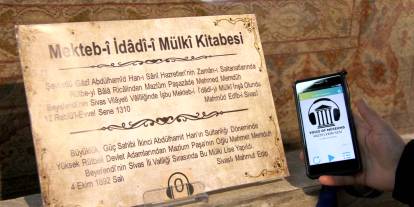 Mekteb-i İdâdî-i Mülkî Kitabesi
Şevketlü Gazi Abdülhamid Han-ı Sânî Hazretleri'nin Zamân-ı Saltanatlarında
Rütbe-yi Bâlâ Ricâlinden Mazlum Paşazâde Mehmed Memduh
Beyefendi'nin Sivas Vilâyeti Vâliliğinde İşbu Mekteb-i İdâdî-yi Mülkî İnşâ Olundu
12 Rebiü'l-Evvel Sene 1310 Mahmûd Edîb-i Sivasî
Büyük, Güç Sahibi İkinci Abdülhamit Han'ın Sultanlığı Döneminde
Yüksek Rütbeli Devlet Adamlarından Mazlum Paşa'nın Oğlu Mehmet Memduh
Beyefendi'nin Sivas İli Valiliği Sırasında Bu Mülki Lise Yapıldı.
4 Ekim 1892 Salı Sivaslı Mahmut Edip
VOICE OF